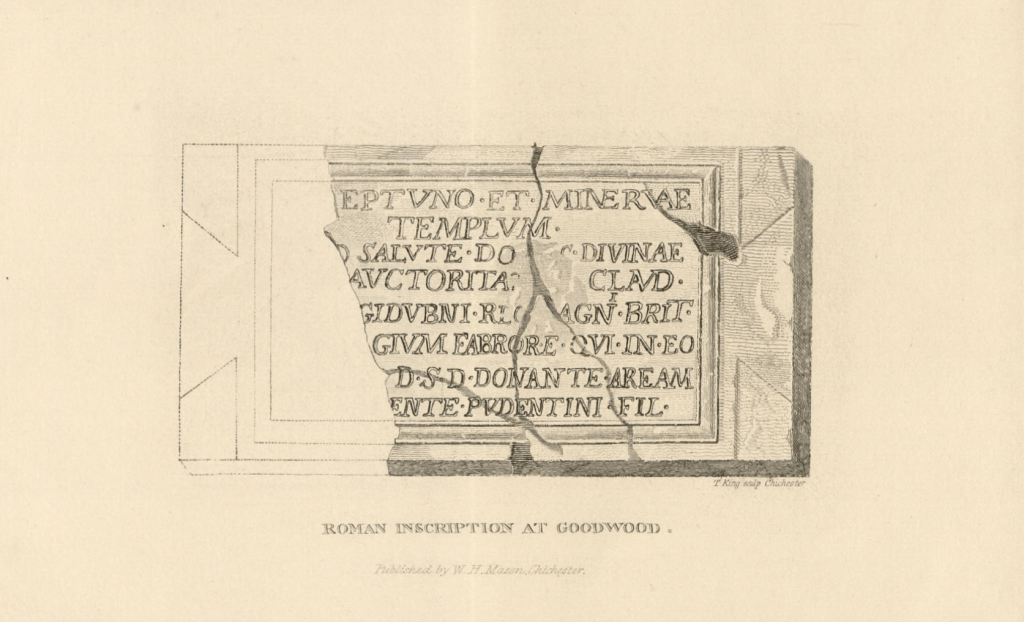 EPTVNO·ET·MINERVAE
TEMPLVM·
O SALVTE·DO C·DIVINAE
AVCTORITA CLAVD·
GIDVBNI·R AGNI·BRIT·
GIVM FABRORE·QVI·IN·EO
D·S·D·DONANTE·AREAM
ENTE·PVDENTINI·FIL·
T. King sculp Chichester
ROMAN INSCRIPTION AT GOODWOOD.
Published by W. H. Mason, Chichester.